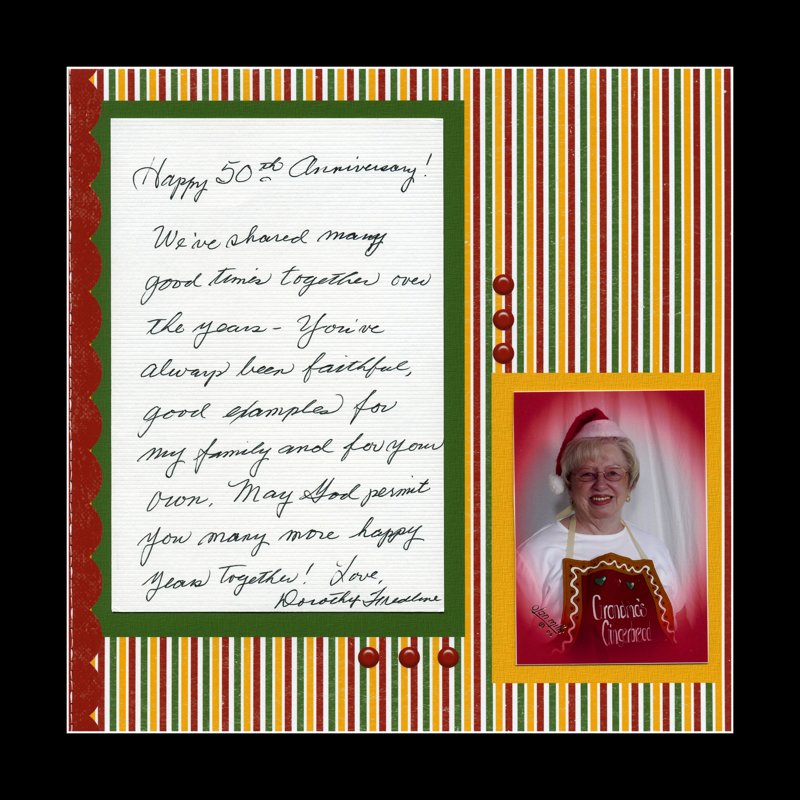 Happy 50th Anniversary!
We've shared many
good times together over
the years – You've
always been faithful,
good examples for
my family and for your
own. May God permit
you many more happy
years together! Love,
Dorothy
Grandma's
Gingerbread